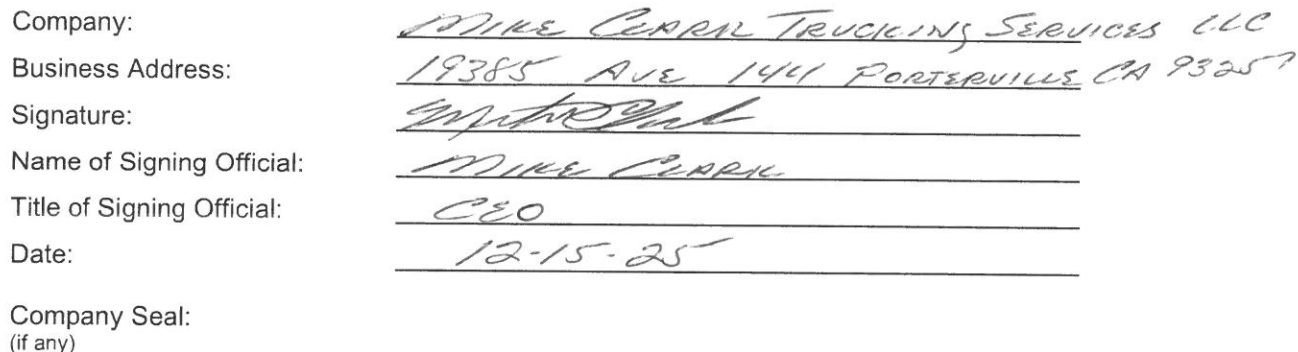 Company: MIKE CLARK TRUCKING SERVICES LLC
Business Address: 19385 AVE 144 PORTERVILLE CA 93257
Signature:
Name of Signing Official: MIKE CLARK
Title of Signing Official: CEO
Date: 12-15-25
Company Seal:
(if any)